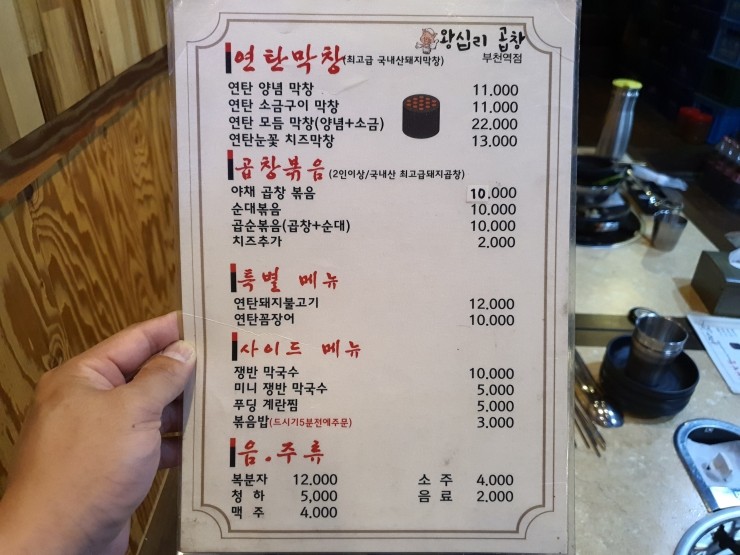 왕십리 곱창
부천역점
연탄막창(최고급 국내산돼지막창)
연탄 양념 막창 11,000
연탄 소금구이 막창 11,000
연탄 모듬 막창(양념+소금) 22,000
연탄눈꽃 치즈막창 13,000
곱창볶음 (2인이상/국내산 최고급돼지곱창)
야채 곱창 볶음 10,000
순대볶음 10,000
곱순볶음(곱창+순대) 10,000
치즈추가 2,000
특별 메뉴
연탄돼지불고기 12,000
연탄꼼장어 10,000
사이드 메뉴
쟁반 막국수 10,000
미니 쟁반 막국수 5,000
푸딩 계란찜 5,000
볶음밥(드시기5분전에주문) 3,000
음.주류
복분자 12,000 소 주 4,000
청 하 5,000 음 료 2,000
맥 주 4,000